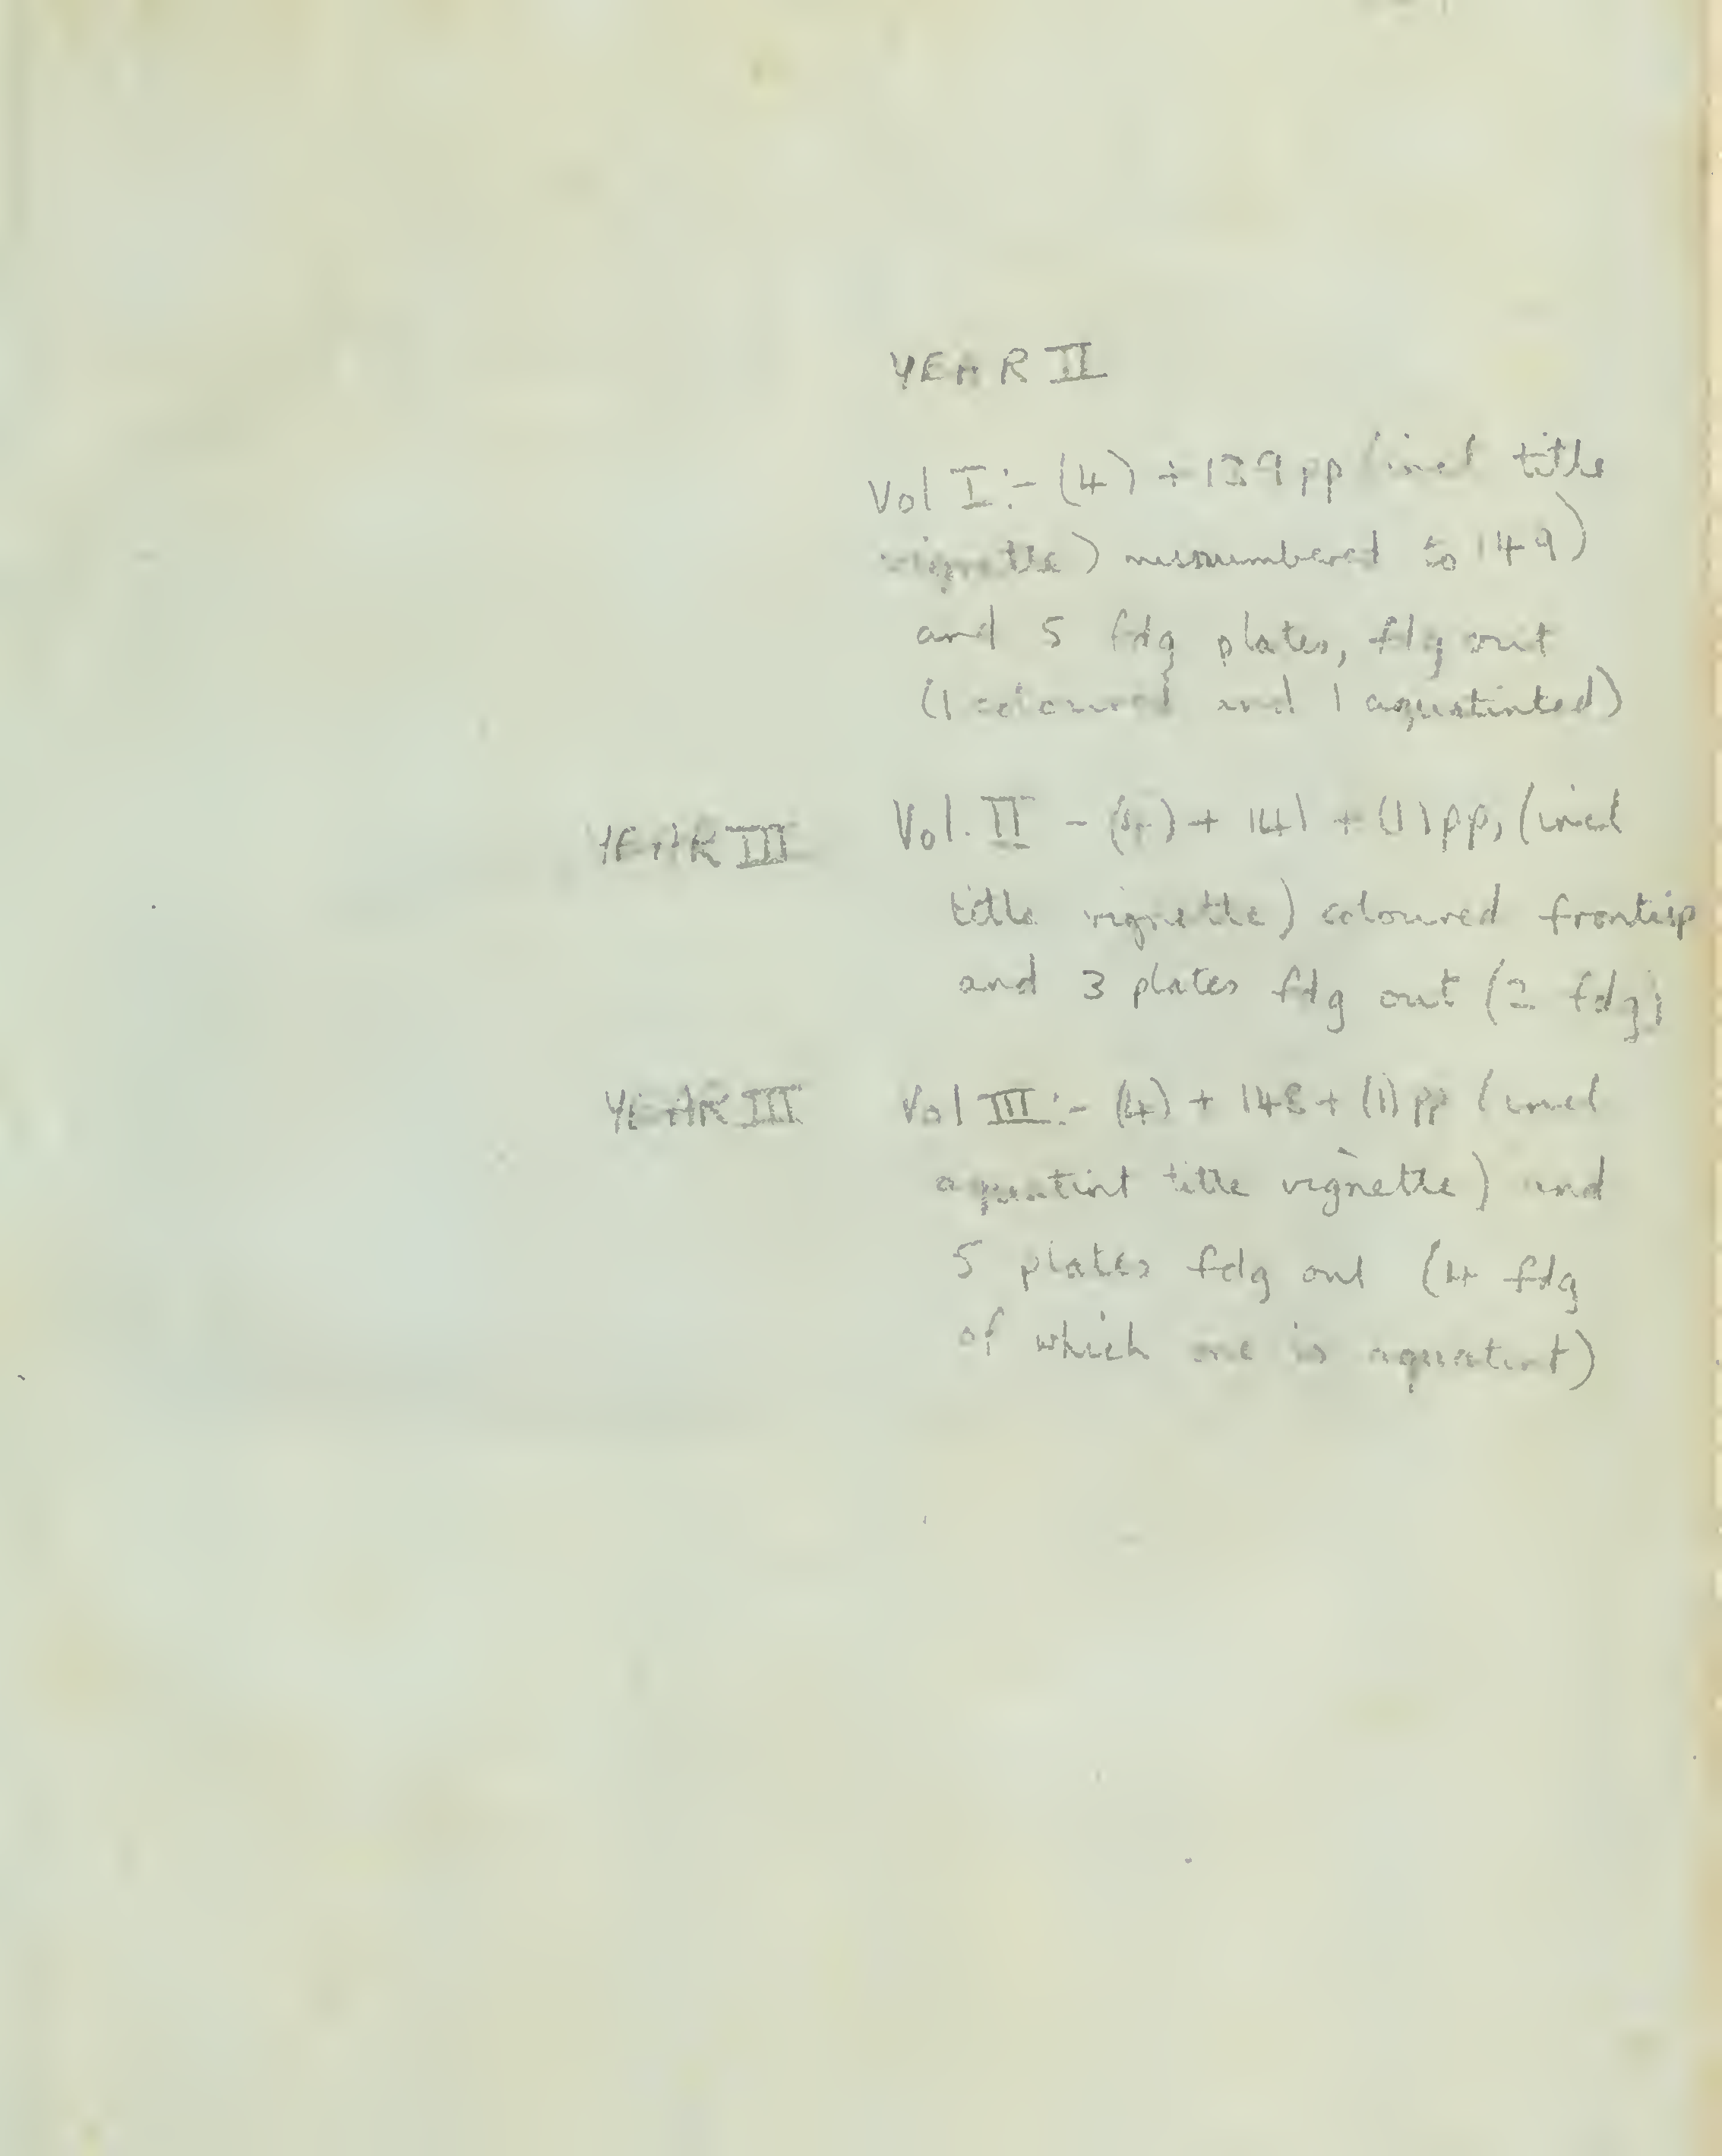 YEAR II
Vol I:- (4) + 139 pp (incl title
vignette) misnumbered to 149)
and 5 fdg plates, fdg out
(1 coloured and 1 aquatinted)
YEAR III Vol. II - (4) + 141 + (1) pp, (incl
title vignette) coloured frontisp
and 3 plates fdg out (2 fdg)
YEAR III Vol III:- (4) + 148 + (1) pp (incl
aquatint title vignette) and
5 plates fdg out (4 fdg
of which one is aquatint)